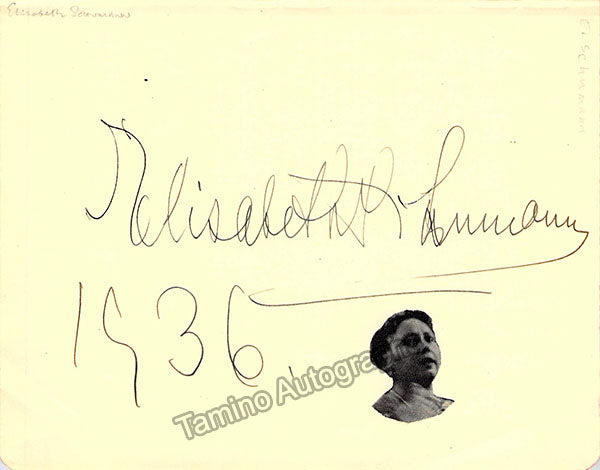 Elisabeth Schumann
El Schumann
Elisabeth Schumann
1936.
Tamino Autogra